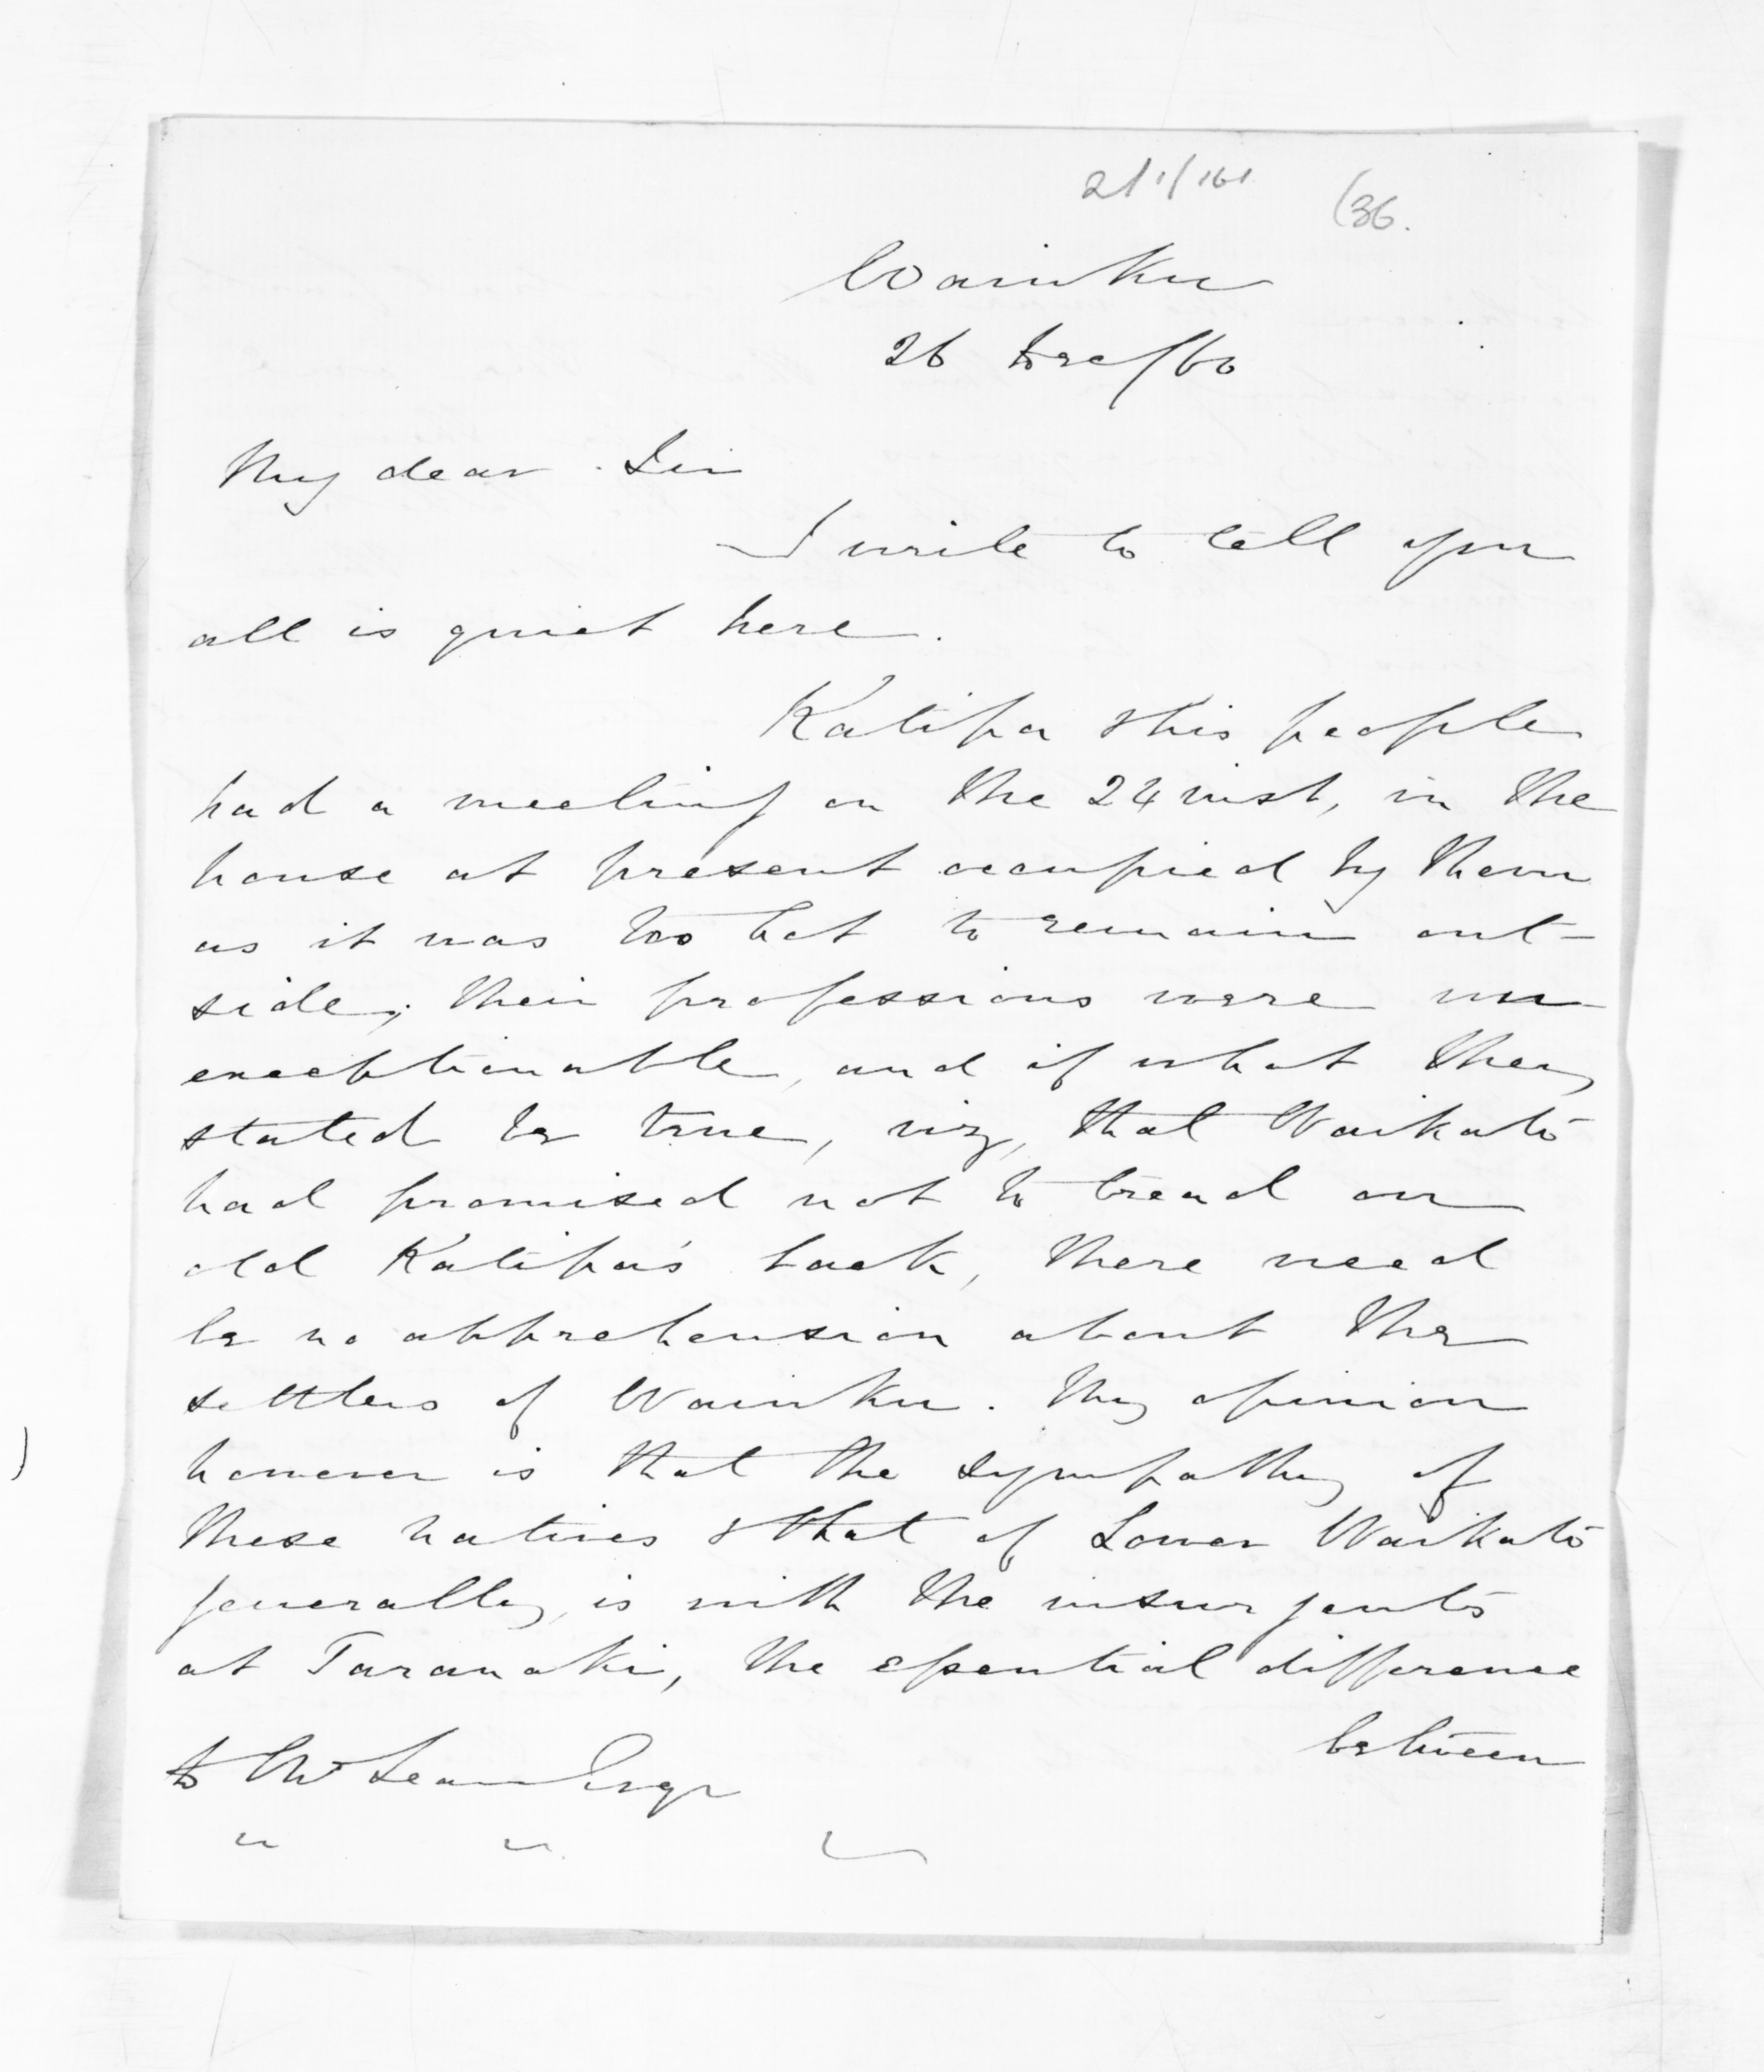 21/1/161 (36.
Waiuku
26 Dec/60
My dear Sir
I write to tell you
all is quiet here.
Katipa & his people
had a meeting on the 24 inst, in the
house at present occupied by them
as it was too hot to remain out-
side; their professions were un
exceptionable, and if what they
stated be true, viz, that Waikato
had promised not to tread on
old Katipa's back, there need
be no apprehension about the
settlers of Waiuku. My opinion
however is that the sympathy of
these natives & that of Lower Waikato
generally, is with the insurgents
at Taranaki, the essential difference
between
to McLean Esqr
" " "